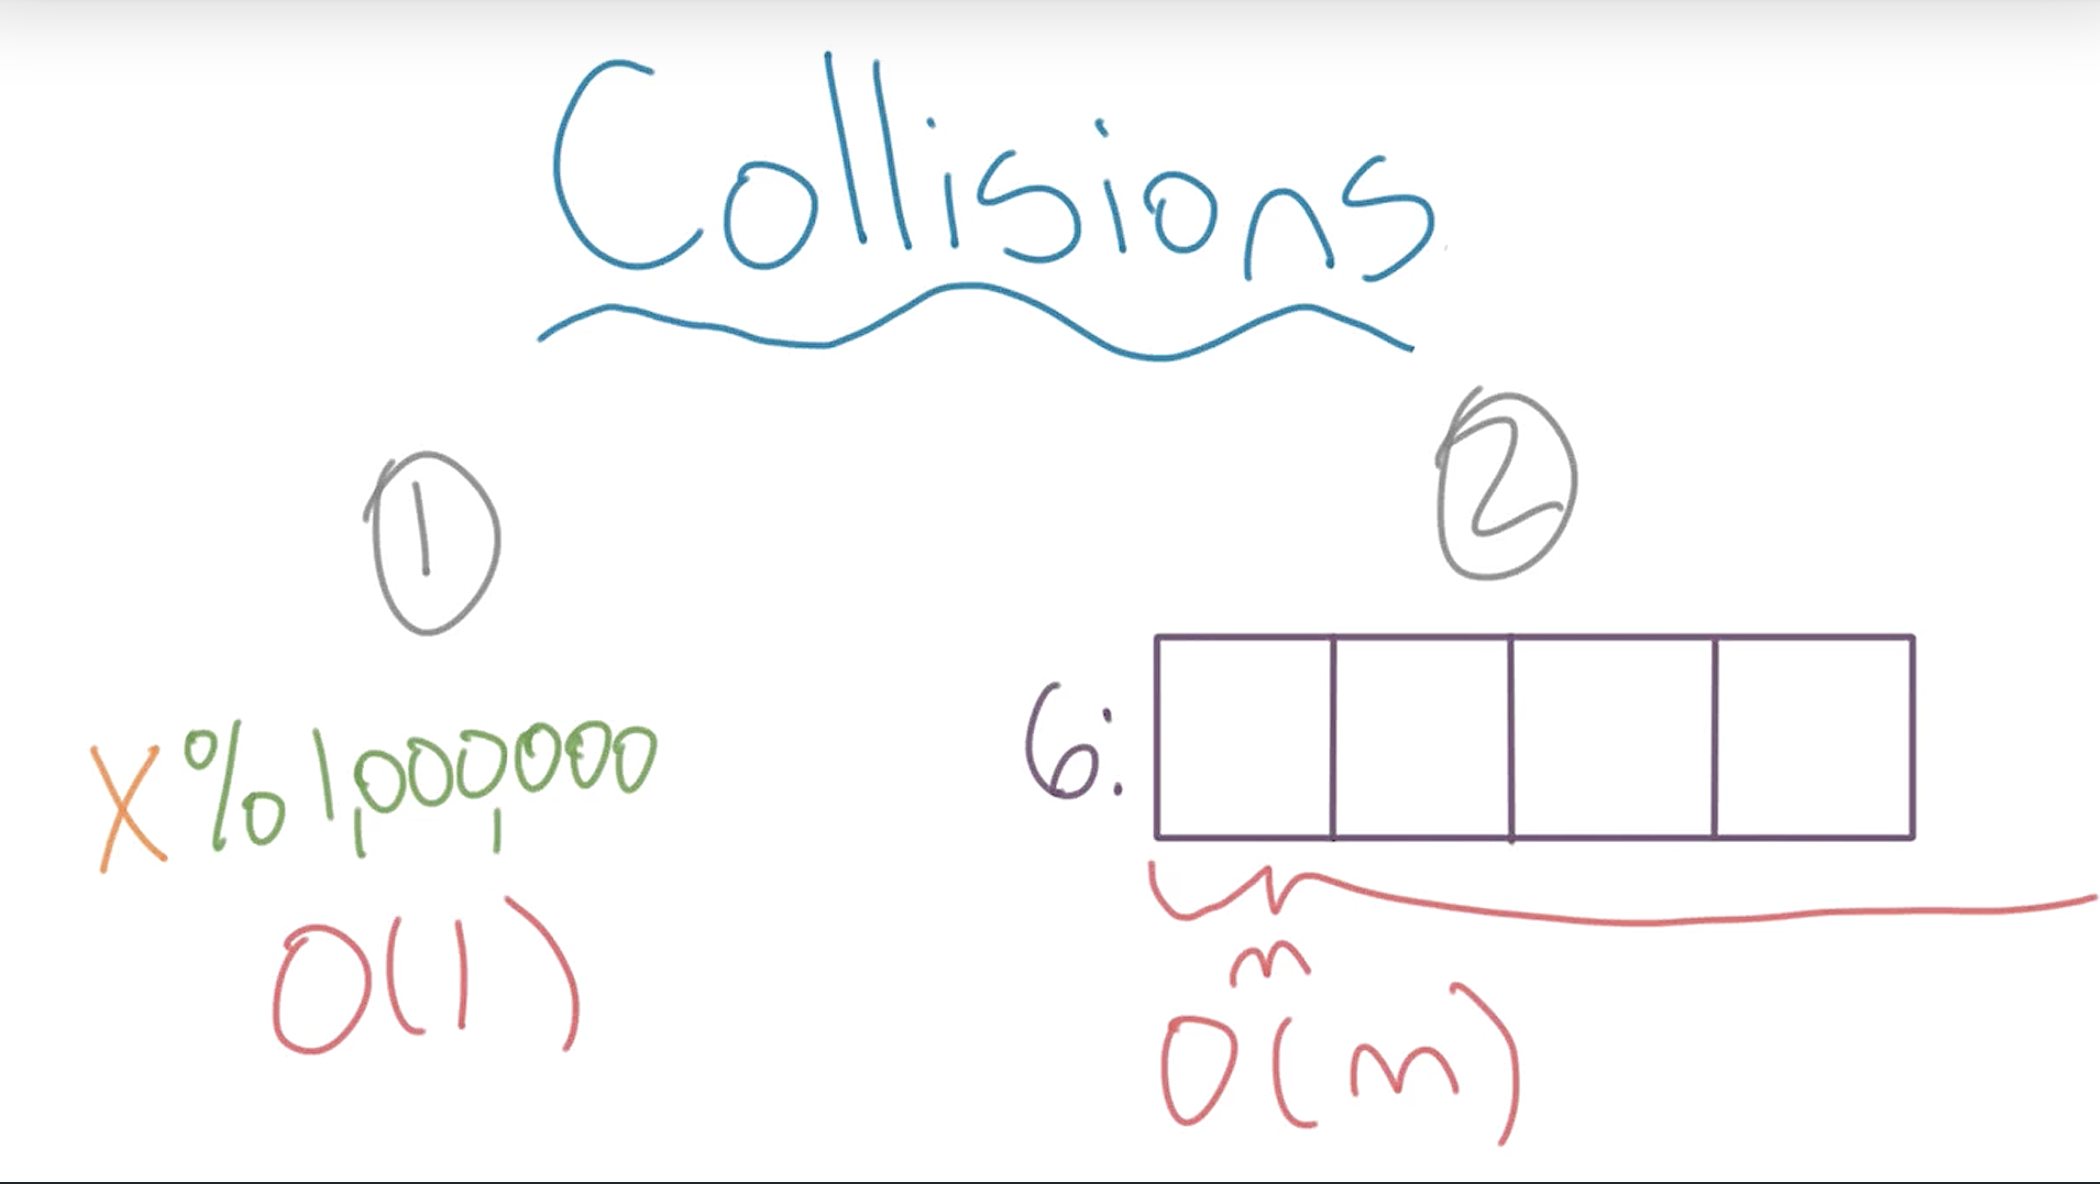 Collisions
1
2
X%1,000,000
6:
O(1)
m
O(m)